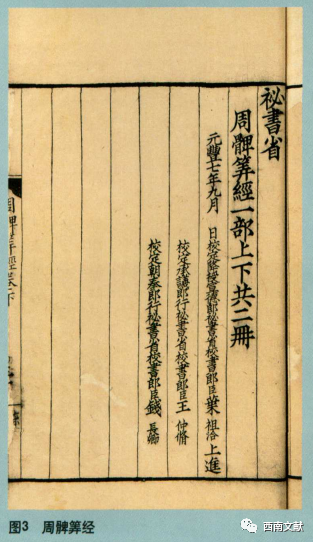 祕書省
周髀筭經一部上下共二冊
元豐七年九月 日校定降授宣德郎祕書省校書郎臣葉 祖洽 上進
校定承議郎行祕書省校書郎臣王 仲脩
校定朝奉郎行祕書省校書郎臣錢 長卿
周髀筭經卷下
图3 周髀筭经
西南文献